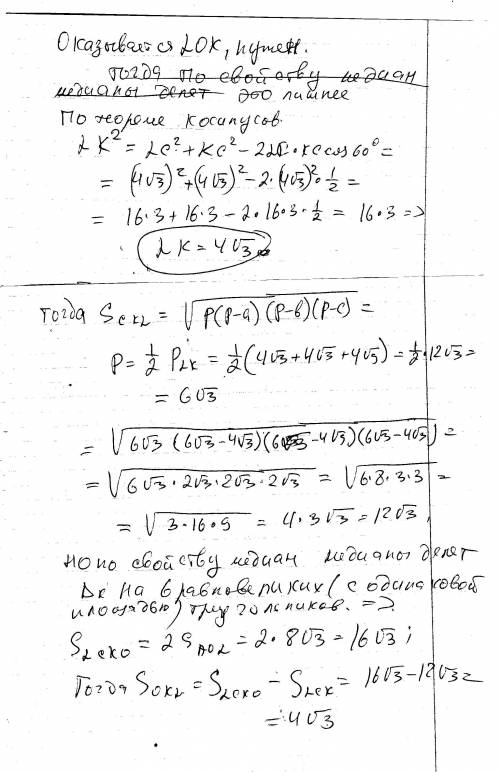 Оказывается LOK, нужен.
тогда по свойству медиан
медианы делят это лишнее
По теореме косинусов
LK² = LC² + KC² - 2LC·KC cos 60° =
= (4√3)² + (4√3)² - 2·(4√3)²·½ =
= 16·3 + 16·3 - 2·16·3·½ = 16·3 =>
LK = 4√3.
тогда S_CKL = √P(P-a)(P-b)(P-c) =
P = ½ P_LK = ½(4√3+4√3+4√3) = ½·12√3 =
= 6√3
= √6√3 (6√3-4√3)(6√3-4√3)(6√3-4√3) =
= √6√3·2√3·2√3·2√3 = √6·8·3·3 =
= √3·16·9 = 4·3√3 = 12√3,
но по свойству медиан медианы делят
Δк на 6 равновеликих (с одинаковой
площадью) треугольников. =>
S_LCKO = 2S_AOL = 2·8√3 = 16√3;
Тогда S_OKL = S_LCKO - S_LCK = 16√3-12√3=
= 4√3